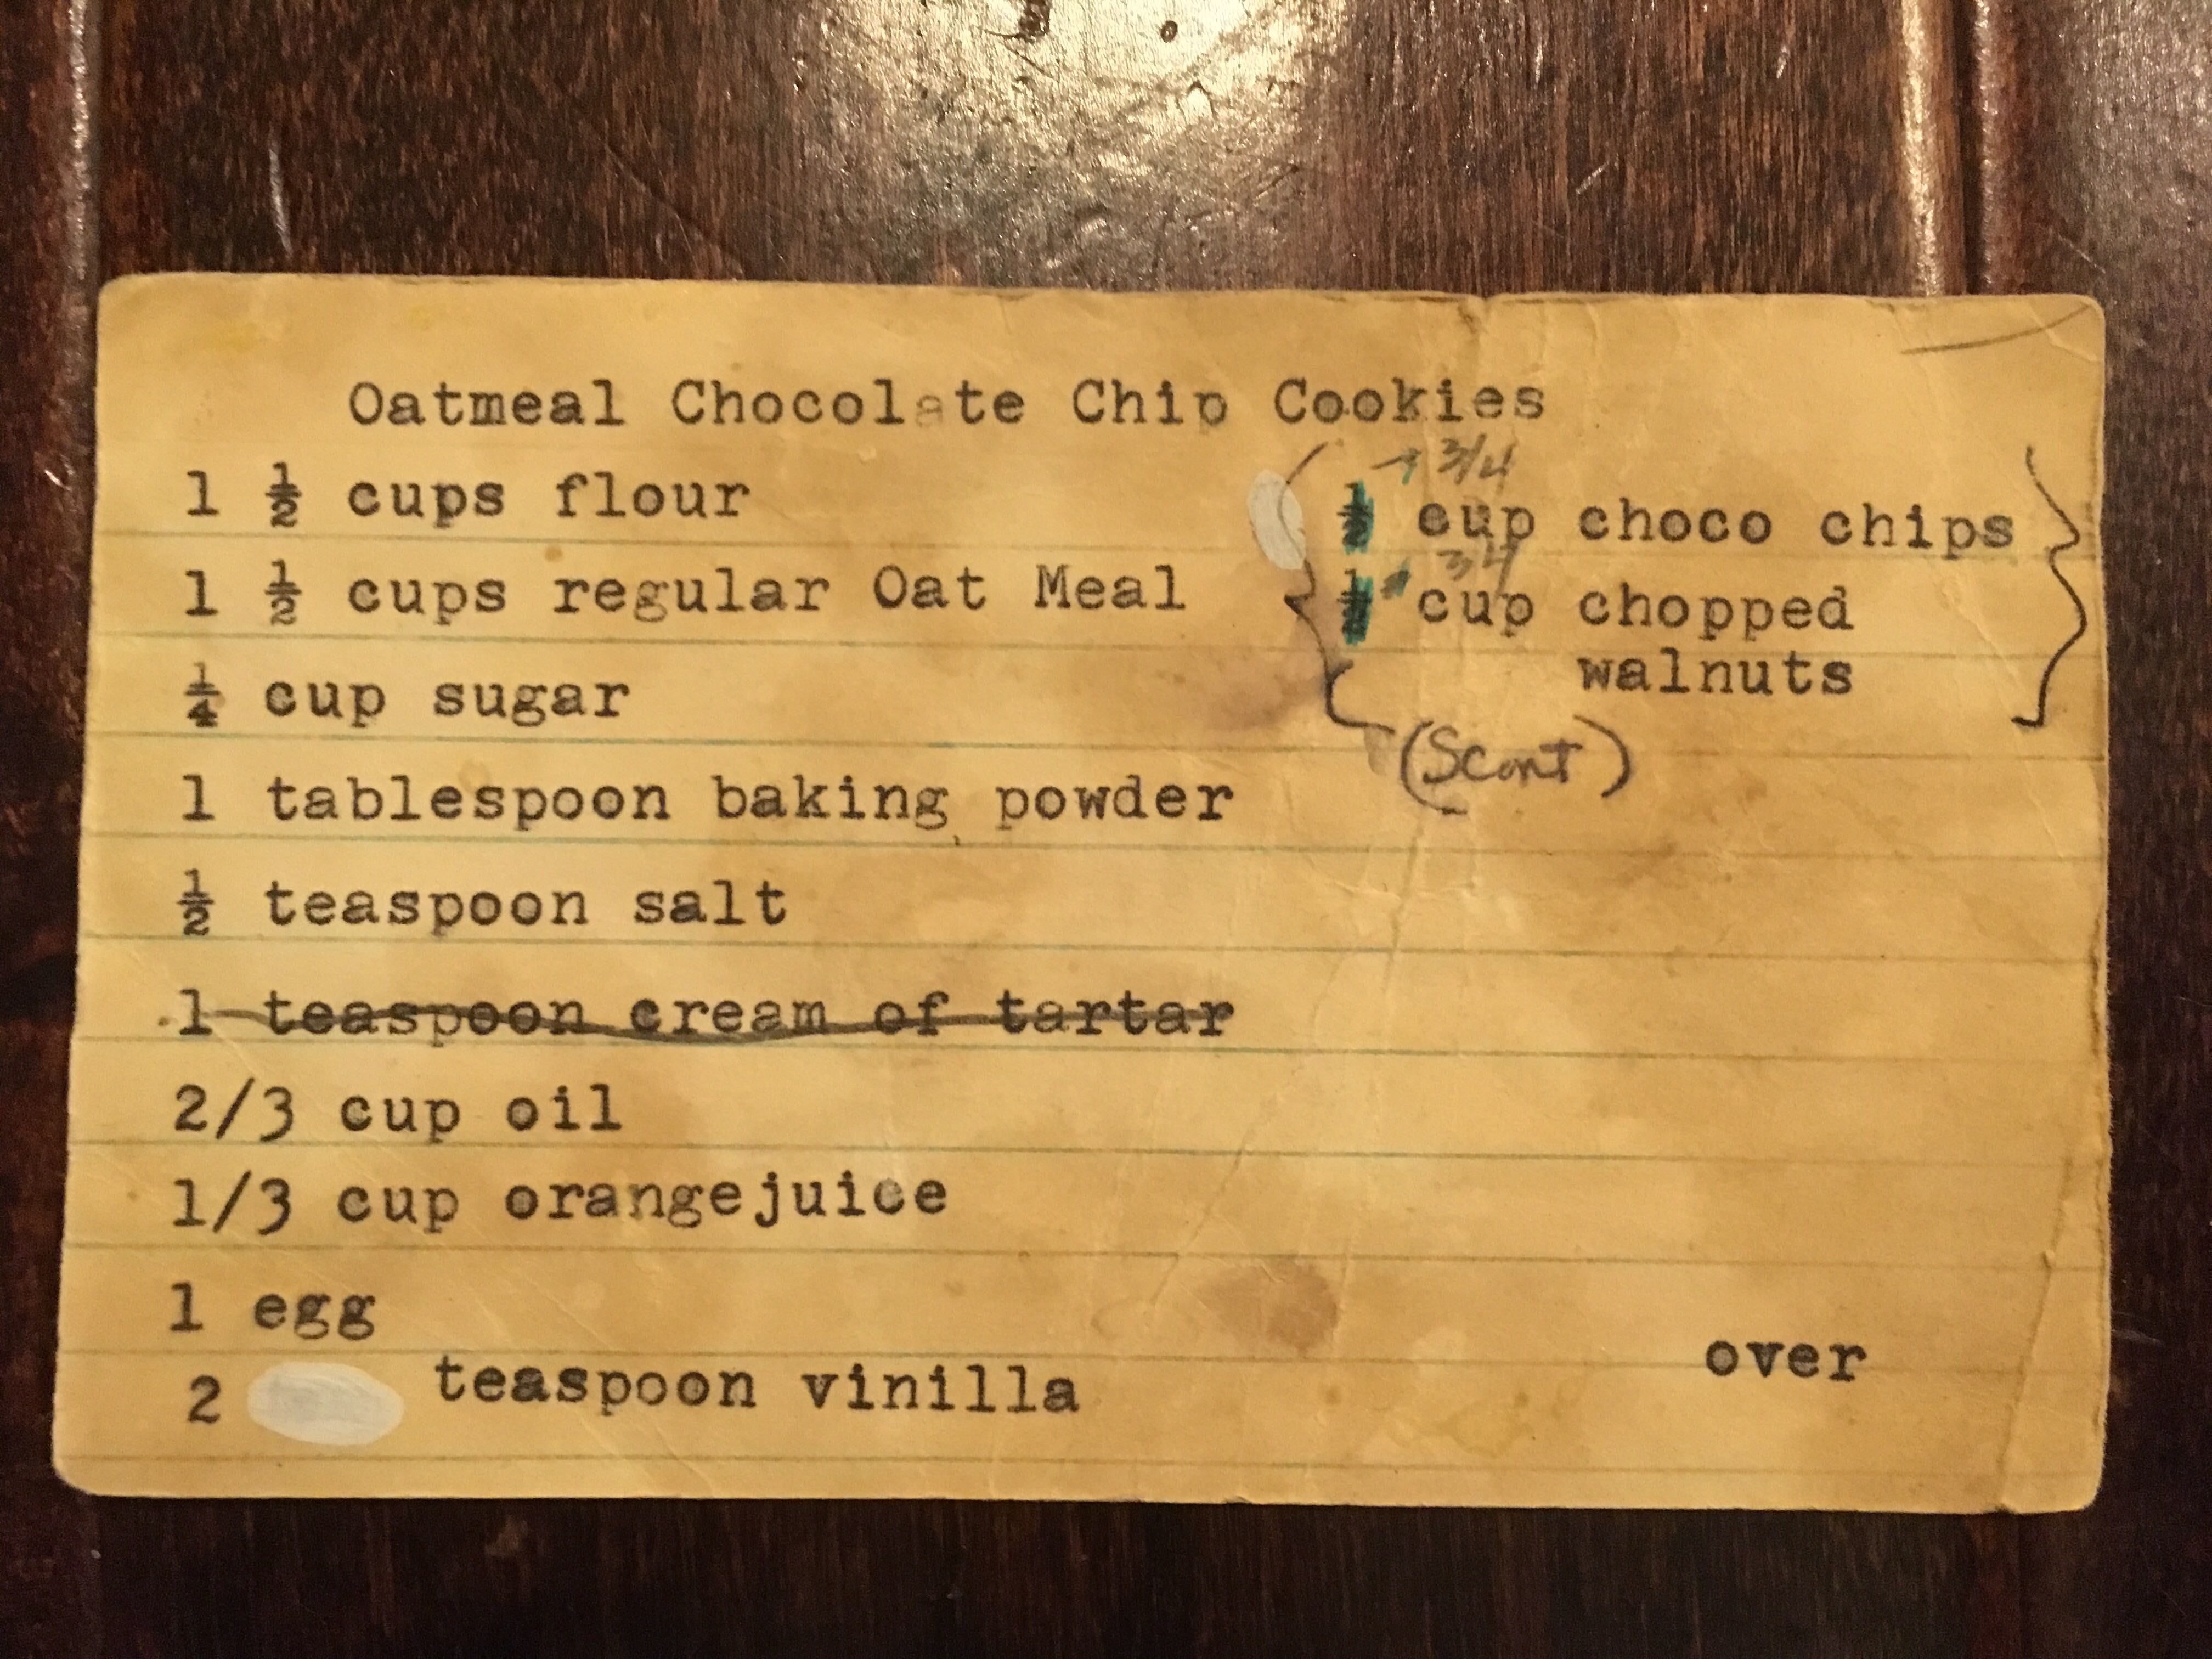 Oatmeal Chocolate Chip Cookies
1 ½ cups flour
1 ½ cups regular Oat Meal
¼ cup sugar
1 tablespoon baking powder
½ teaspoon salt
1 teaspoon cream of tartar
2/3 cup oil
1/3 cup orangejuice
1 egg
2 teaspoon vinilla
3/4
½ cup choco chips
3/4
½ cup chopped
walnuts
(Scant)
over